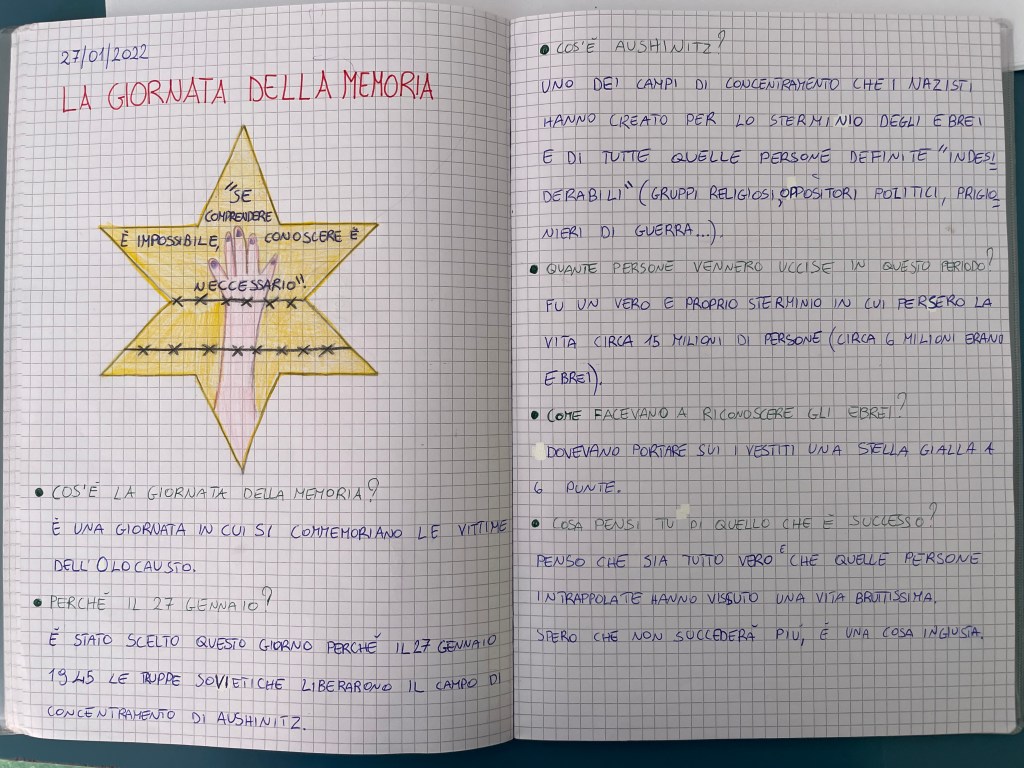 27/01/2022
LA GIORNATA DELLA MEMORIA
"SE
COMPRENDERE
È IMPOSSIBILE, CONOSCERE È
NECCESSARIO".
• COS'È LA GIORNATA DELLA MEMORIA?
È UNA GIORNATA IN CUI SI COMMEMORIANO LE VITTIME
DELL'OLOCAUSTO.
• PERCHÉ IL 27 GENNAIO?
È STATO SCELTO QUESTO GIORNO PERCHÉ IL 27 GENNAIO
1945 LE TRUPPE SOVIETICHE LIBERARONO IL CAMPO DI
CONCENTRAMENTO DI AUSHINITZ.
• COS'È AUSHINITZ?
UNO DEI CAMPI DI CONCENTRAMENTO CHE I NAZISTI
HANNO CREATO PER LO STERMINIO DEGLI EBREI
E DI TUTTE QUELLE PERSONE DEFINITE "INDESI
DERABILI" (GRUPPI RELIGIOSI, OPPOSITORI POLITICI, PRIGIO
NIERI DI GUERRA...).
• QUANTE PERSONE VENNERO UCCISE IN QUESTO PERIODO?
FU UN VERO E PROPRIO STERMINIO IN CUI PERSERO LA
VITA CIRCA 15 MILIONI DI PERSONE (CIRCA 6 MILIONI ERANO
EBREI).
• COME FACEVANO A RICONOSCERE GLI EBREI?
DOVEVANO PORTARE SUI I VESTITI UNA STELLA GIALLA A
6 PUNTE.
• COSA PENSI TU DI QUELLO CHE È SUCCESSO?
PENSO CHE SIA TUTTO VERO E CHE QUELLE PERSONE
INTRAPPOLATE HANNO VISSUTO UNA VITA BRUTISSIMA.
SPERO CHE NON SUCCEDERÀ PIÚ, È UNA COSA INGIUSTA.